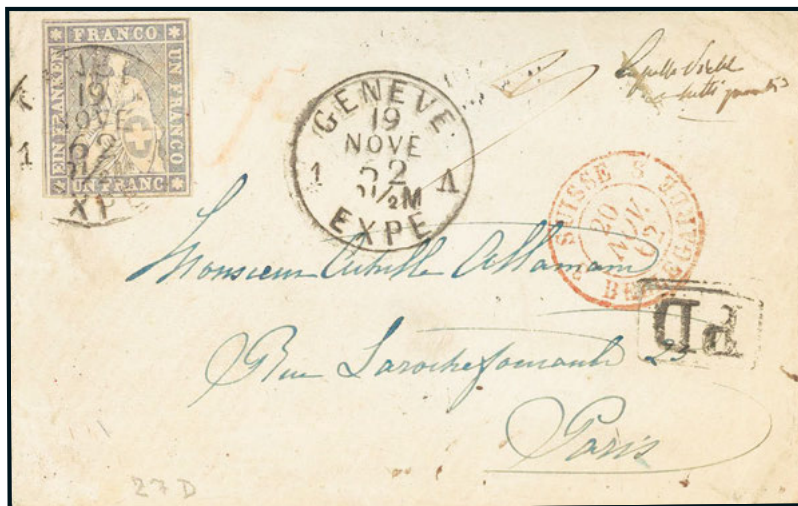 FRANCO
EIN FRANKEN
UN FRANCO
UN FRANC
19
NOVE
62
1
GENEVE
19
NOVE
1 62 A
½M
EXPE
SUISSE
20
NOV.
62
BELLEGARDE
PD
Monsieur Achille Allamand
Rue Larochefoucault 23
Paris
27 D